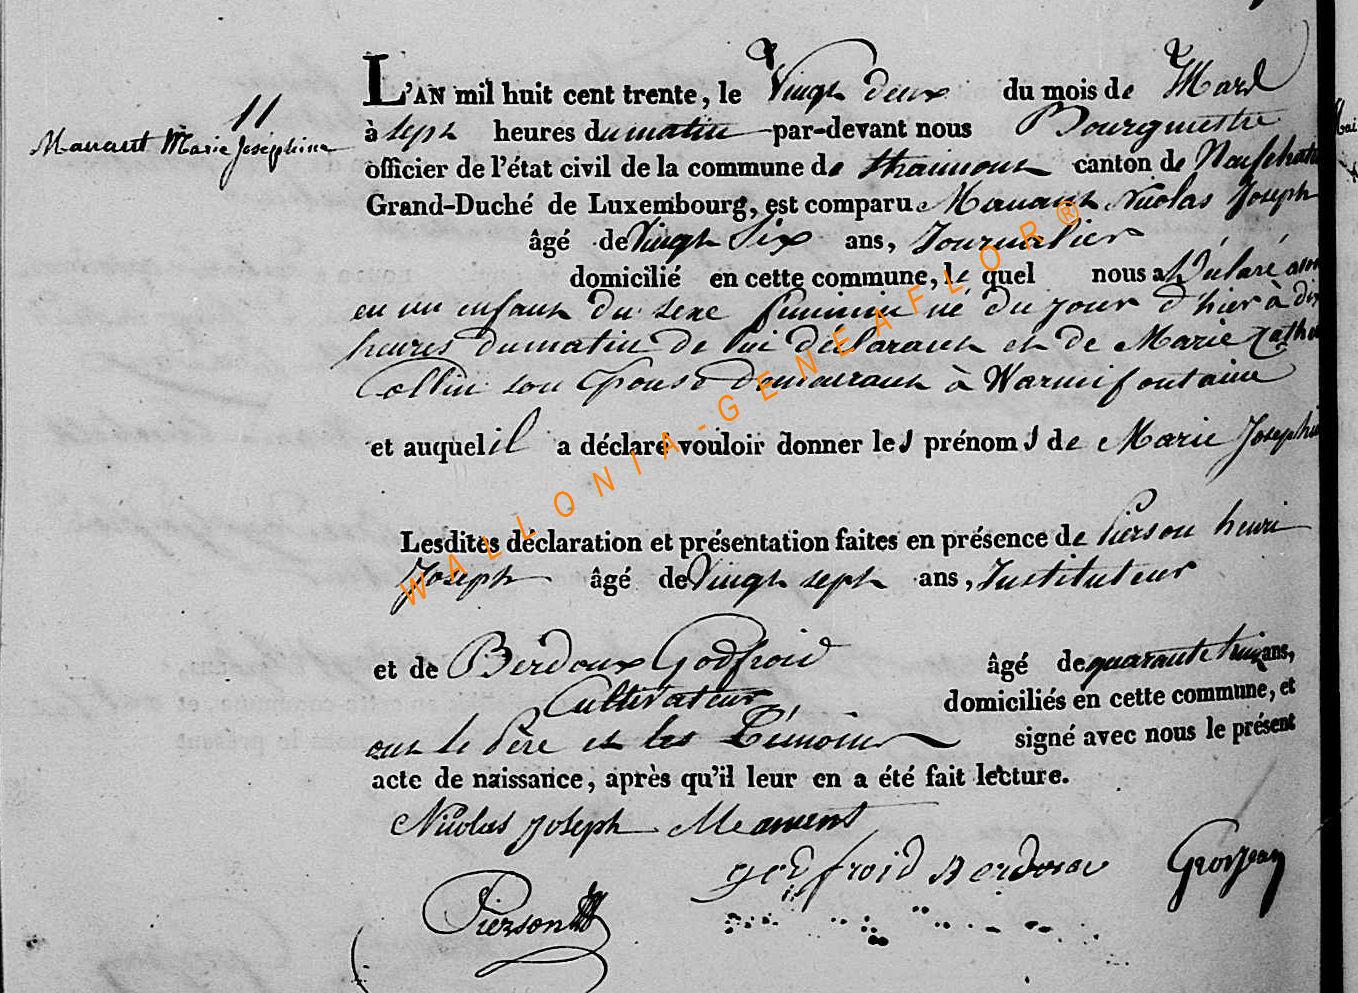 11
Manant Marie Joséphine
L'AN mil huit cent trente, le Vingt deux du mois de Mars
à sept heures du matin par-devant nous Bourgmestre
officier de l'état civil de la commune de Straimont canton de Neufchate
Grand-Duché de Luxembourg, est comparu Manant Nicolas Joseph
âgé de Vingt Six ans, Journalier
domicilié en cette commune, le quel nous a Déclaré
eu un enfant du sexe féminin né du jour d'hier à dix
heures du matin de lui déclarant et de Marie Cathe
Collin son Epouse demeurant à Warmifontaine
et auquel il a déclaré vouloir donner les prénoms de Marie Josephin
Lesdites déclaration et présentation faites en présence de Pierson henri
Joseph âgé de Vingt sept ans, Instituteur
et de Berdoux Godfroid âgé de quarante ans,
Cultivateur domiciliés en cette commune, et
ont le Père et les Témoins signé avec nous le présent
acte de naissance, après qu'il leur en a été fait lecture.
Nicolas Joseph Manent
godfroid Berdoux Grosjean
Pierson
WALLONIA-GENEAFLOR®